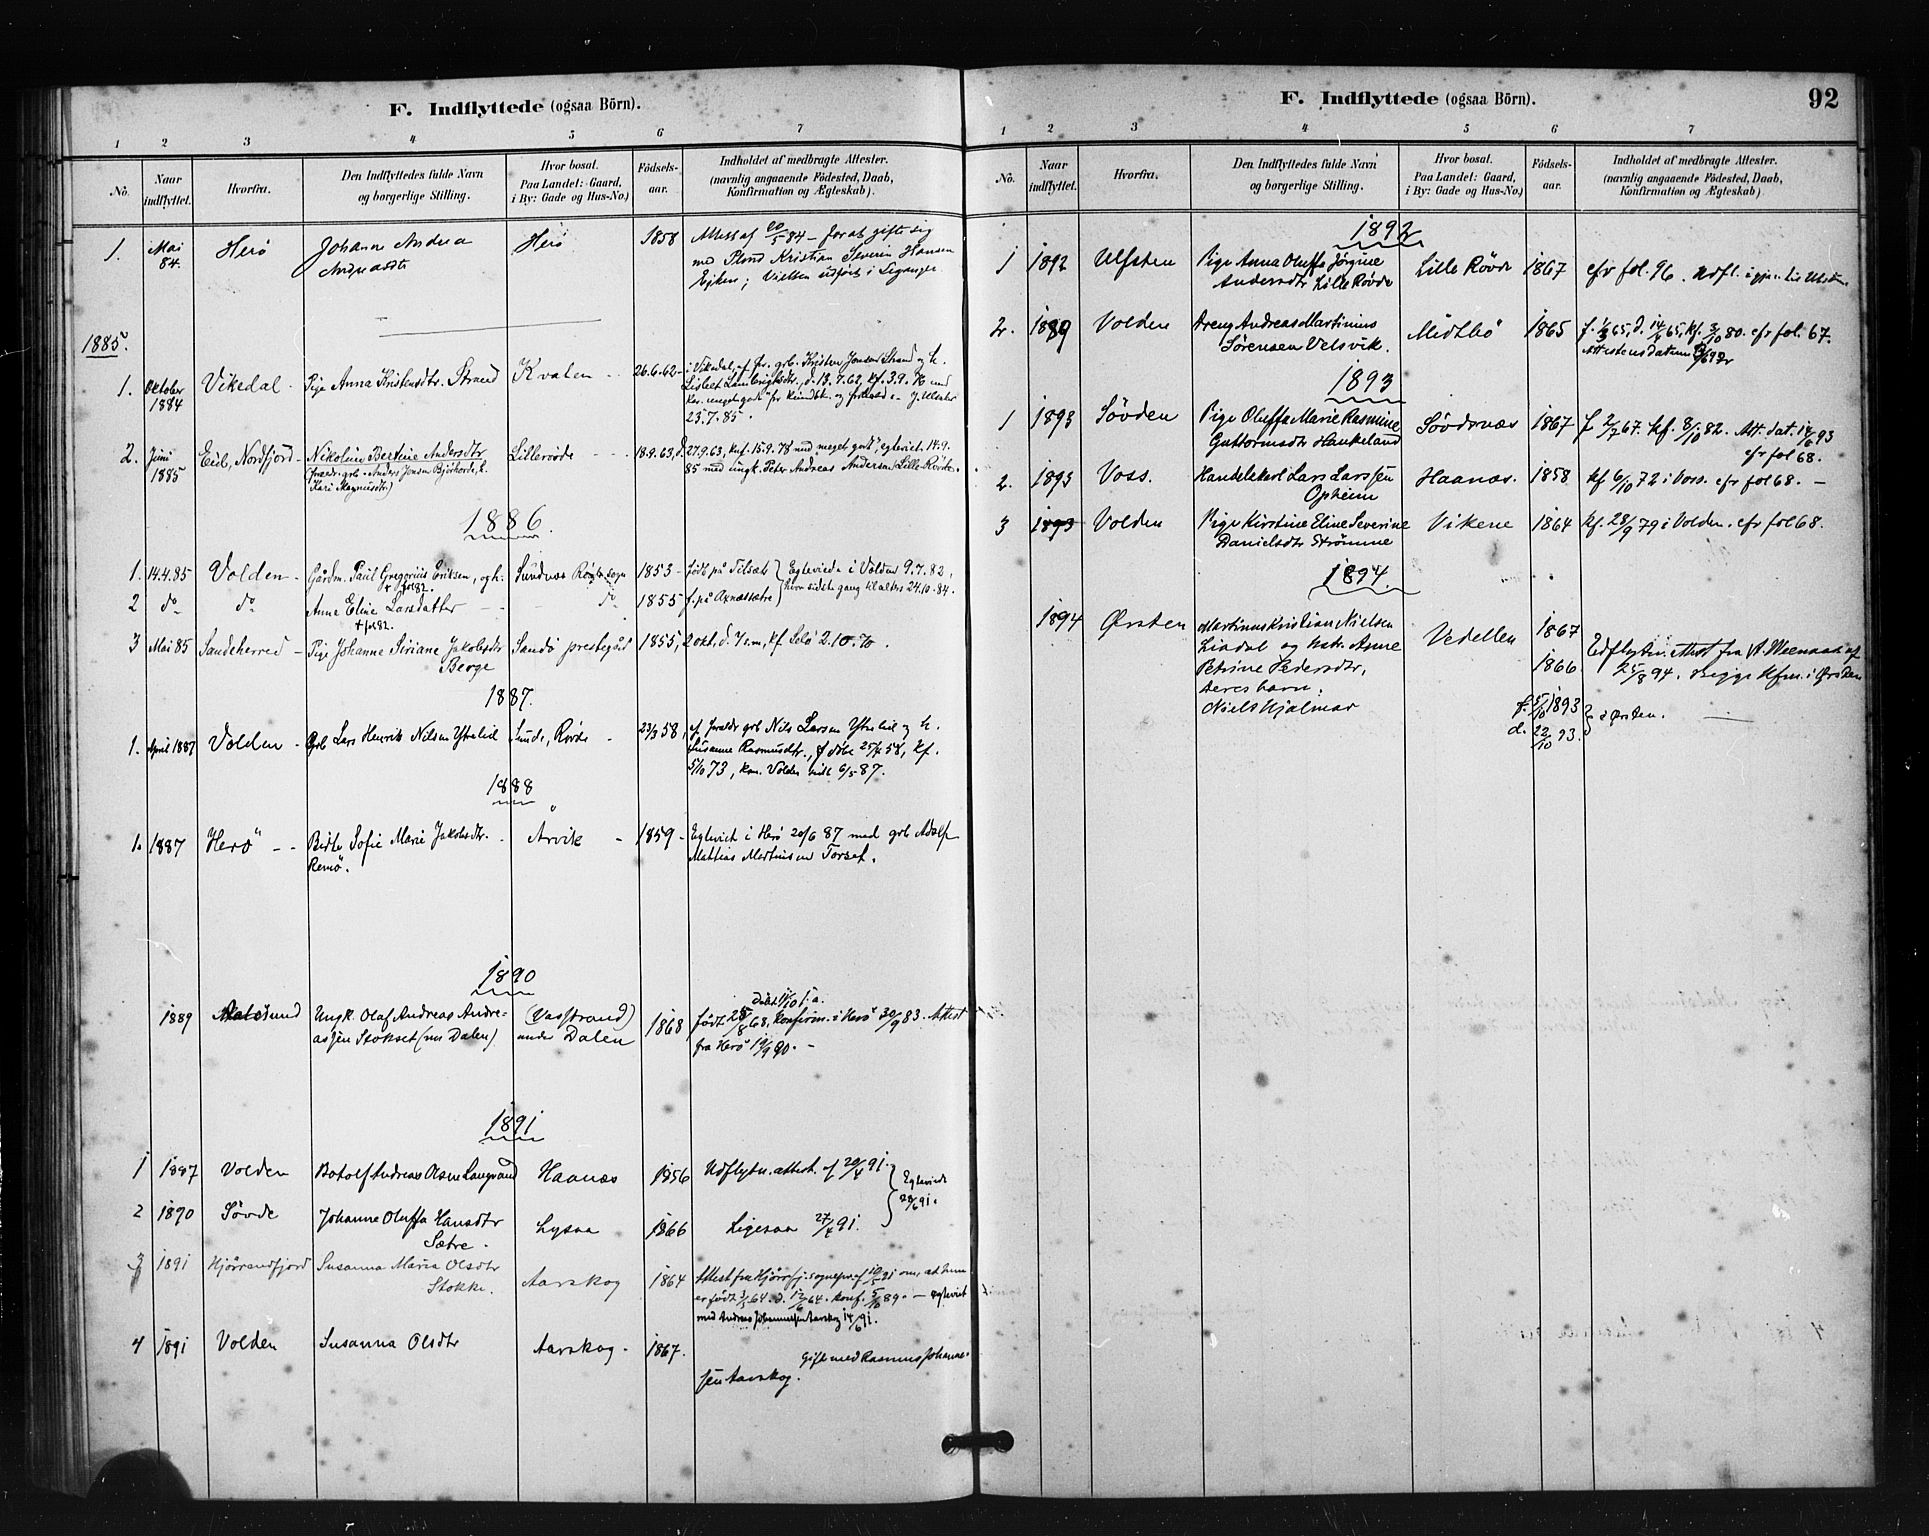 F. Indflyttede (ogsaa Börn).
1 2 3 4 5 6 7
No. Naar indflyttet. Hvorfra. Den Indflyttedes fulde Navn og borgerlige Stilling. Hvor bosat. Paa Landet: Gaard, i By: Gade og Hus-No.) Födsels-aar. Indholdet af medbragte Attester. (navnlig angaaende Födested, Daab, Konfirmation og Ægteskab).
1. Mai 84. Herö Johanne Andrea Herö 1858 Attest af 20/5 84 – for at gifte sig
Andreasdtr med Kristian Severin Hansen
Eiken; Vielsen udført i
1885.
1. Oktober 1884 Vikedal - Pige Anna Kristensdtr. Strand Kvalen - - 26.6.62 - i Vikedal, af for. grb. Kristen Jonsen Strand og h.
Lisbet Lambrigtsdtr., d. 13.7.62, kf. 3.9.76 med
23.7.85.
2. Juni 1885 Eid, Nordfjord - Nikoline Bertine Andersdtr Lillerövde - - - 18.9.63, d. 27.9.63, knf. 15.9.78 med "meget godt", egteviet 14.9.
grb. Anders Jonsen 85 med ungk. Peter Andreas Andersen Lille-Røvde.
Kari Magnusdtr.)
1886.
1. 14.4.85 Volden - Gårdm. Paul Gregorius Eriksen, og h. Sundnæs Røvde sogn 1853 - født på } Egteviede i Volden 9.7.82,
+ fol 82.
2 do do Anne Eline Larsdatter - - - do 1855 f. på Axnessætre } sidste gang til alters 24.10.84.
+ fol 82.
3 Mai 85 Sandeherred - Pige Johanne Siriane Jakobsdtr Sandö prestegård 1855, 2 okt., d. 7 s.m., kf. Selö 2.10.70.
Berge
1887.
1. April 1887 Volden - Grb Lars Henrik Nilsen Ytrelid Sunde, Røvde - 23/3 58, af forældr grb Nils Larsen Ytrelid og h.
Susanne Rasmusdtr., døbt 25/4 58, kf.
5/10 73, kom. Volden sidst 6/5 87.
1888
1. 1887 Herö - - Birte Sofie Marie Jakobsdtr. - Årvik - 1859 - Egteviet i Herö 20/6 87 med grb Adolf
Remö. Mattias Martinussen Torset.
1890
Døbt 11/10 s.a.
1889 Aalesund Ungk. Olaf Andreas Andre- (Vasstrand) 1868 født 28/8 68, konfirm. i Herö 30/9 83. Attest
assen Stokset (nu Dalen) under Dalen fra Herö 19/9 90. -
1891
1 1887 Volden Botolf Andreas Olsen Langvand Haanæs 1856 Udflytn. attest. af 20/4 91. } Egteviede
2 1890 Søvde Johanne Oluffa Hansdtr Lysaa 1866 Ligesaa 27/4 91. } 28/6 91.
Sætre.
3 1891 Hjørrendfjord Susanna Maria Olsdtr Aarskog 1864 Attest fra Hjørrfj. sognepr. af 10/5 91 om, at hun
Stokke. er født 3/5 64. d. 12/6 64. konf. 5/10 89. - egteviet
med Andreas Johannessen Aarskog 14/6 91.
4 1891 Volden Susanna Olsdtr Aarskog. 1867. Gift med Rasmus Johannes-
sen Aarskog.
F. Indflyttede (ogsaa Börn). 92
1 2 3 4 5 6 7
No. Naar indflyttet. Hvorfra. Den Indflyttedes fulde Navn og borgerlige Stilling. Hvor bosat. Paa Landet: Gaard, i By: Gade og Hus-No.) Födsels-aar. Indholdet af medbragte Attester. (navnlig angaaende Födested, Daab, Konfirmation og Ægteskab).
1892
1 1892 Ulfsten Pige Anna Oluffa Jørgine Lille Røvde 1867 cfr fol. 96. Udfl. igjen til Ulfsten.
Andersdtr Lille Røvde
2. 1889 Volden Dreng Andreas Martinius Midtbö 1865 f. 1/3 65, d. 14/4 65, kf. 3/10 80. cfr fol. 67.
Sörensen Velsvik. Attestens datum
1893
1 1893 Søvden Pige Oluffa Marie Rasmine Søvdsnæs 1867 f 2/7 67. kf. 8/10 82. Att. dat. 14/6 93
Guttormsdtr Haukeland cfr fol 68.
2. 1893 Voss. Handelskarl Lars Larssen Haanæs. 1858 kf 6/10 72 i Voss. cfr fol 68. -
Opheim
3 1893 Volden Pige Kirstine Eline Severine Vikene 1864 kf. 28/9 79 i Volden. cfr fol 68.
Danielsdtr Strømme
1894.
1894 Ørsten Martinus Kristian Nielsen Vedellen 1867
Lindal og hstr. Anne 1866 Udflytn. attest fra af
Petrine Pedersdtr, 25/8 94. Begge kfm. i Ørsten
deres barn:
Niels Hjalmar f. 5/10 1893 } i Ørsten.
d. 22/10 93. }